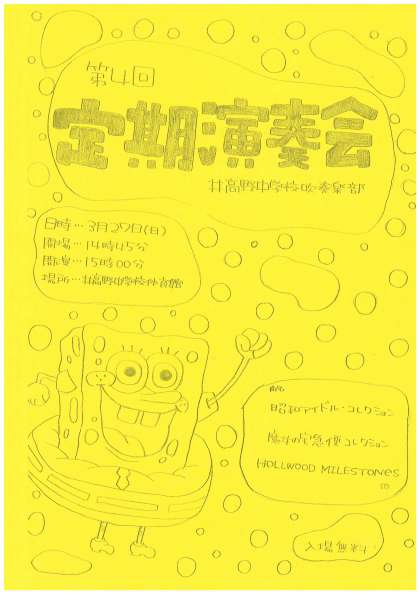 定期演奏会
井高野中学校吹奏楽部
日時…3月29日(日)
開場…14時45分
開演…15時00分
場所…井高野中学校体育館
昭和アイドル・コレクション
魔女の宅急便コレクション
HOLLWOOD MILESTONES
入場無料